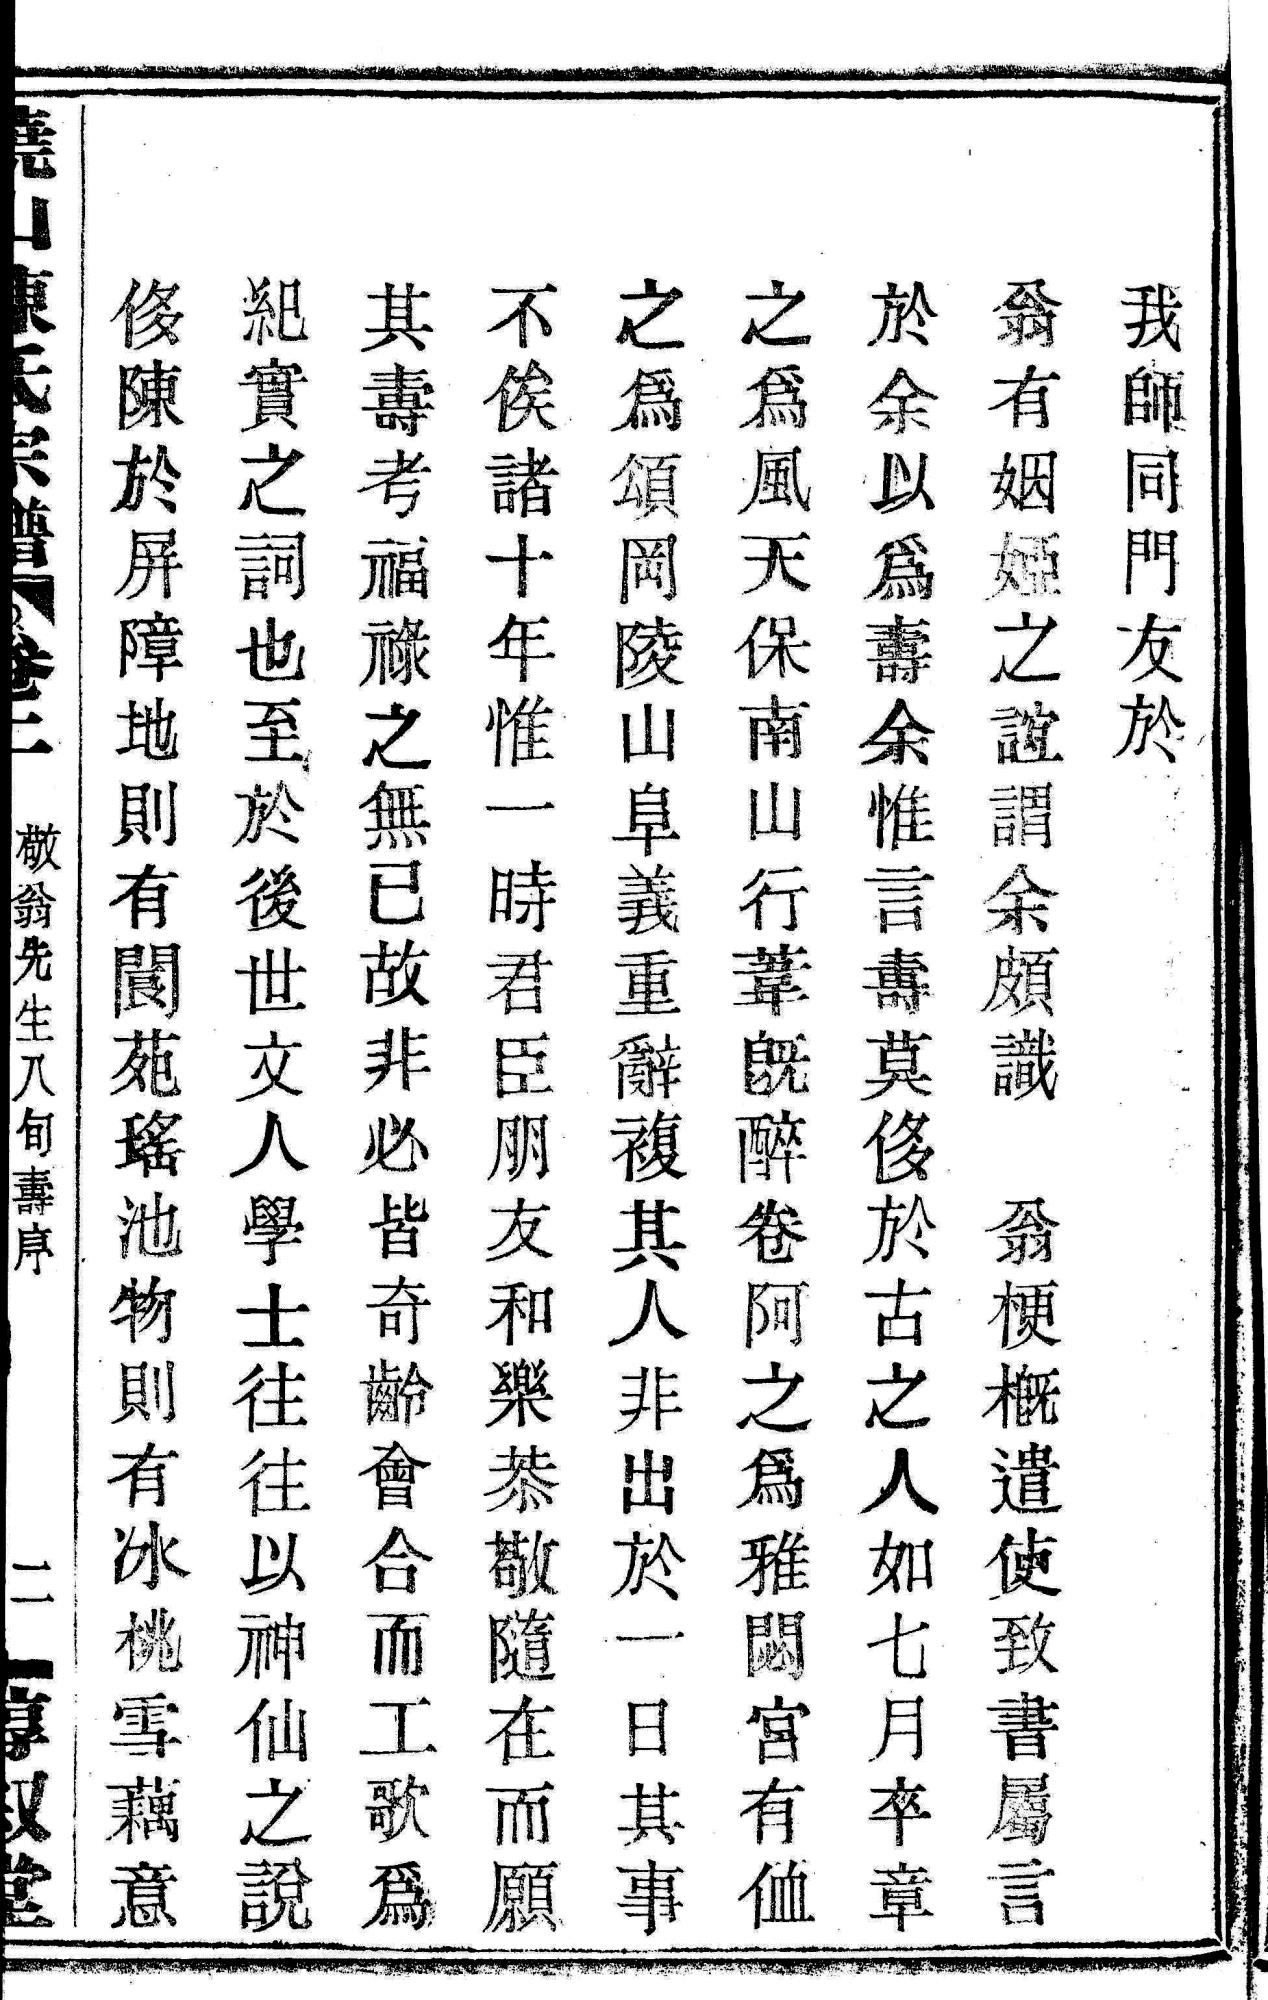 我師同門友於
翁有姻婭之誼謂余頗識　翁梗槪遣使致書屬言
於余以爲壽余惟言壽莫侈於古之人如七月卒章
之爲風天保南山行葦旣醉卷阿之爲雅閟宮有侐
之爲頌岡陵山阜義重辭複其人非出於一日其事
不俟諸十年惟一時君臣朋友和樂恭敬隨在而願
其壽考福祿之無已故非必皆奇齡會合而工歌爲
紀實之詞也至於後世文人學士往往以神仙之說
侈陳於屏障地則有閬苑瑤池物則有冰桃雪藕意
山陳氏宗譜 卷 敬翁先生八旬壽序 二 敘堂